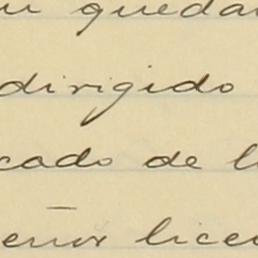 quedar
dirigido
cado de l
señor licen